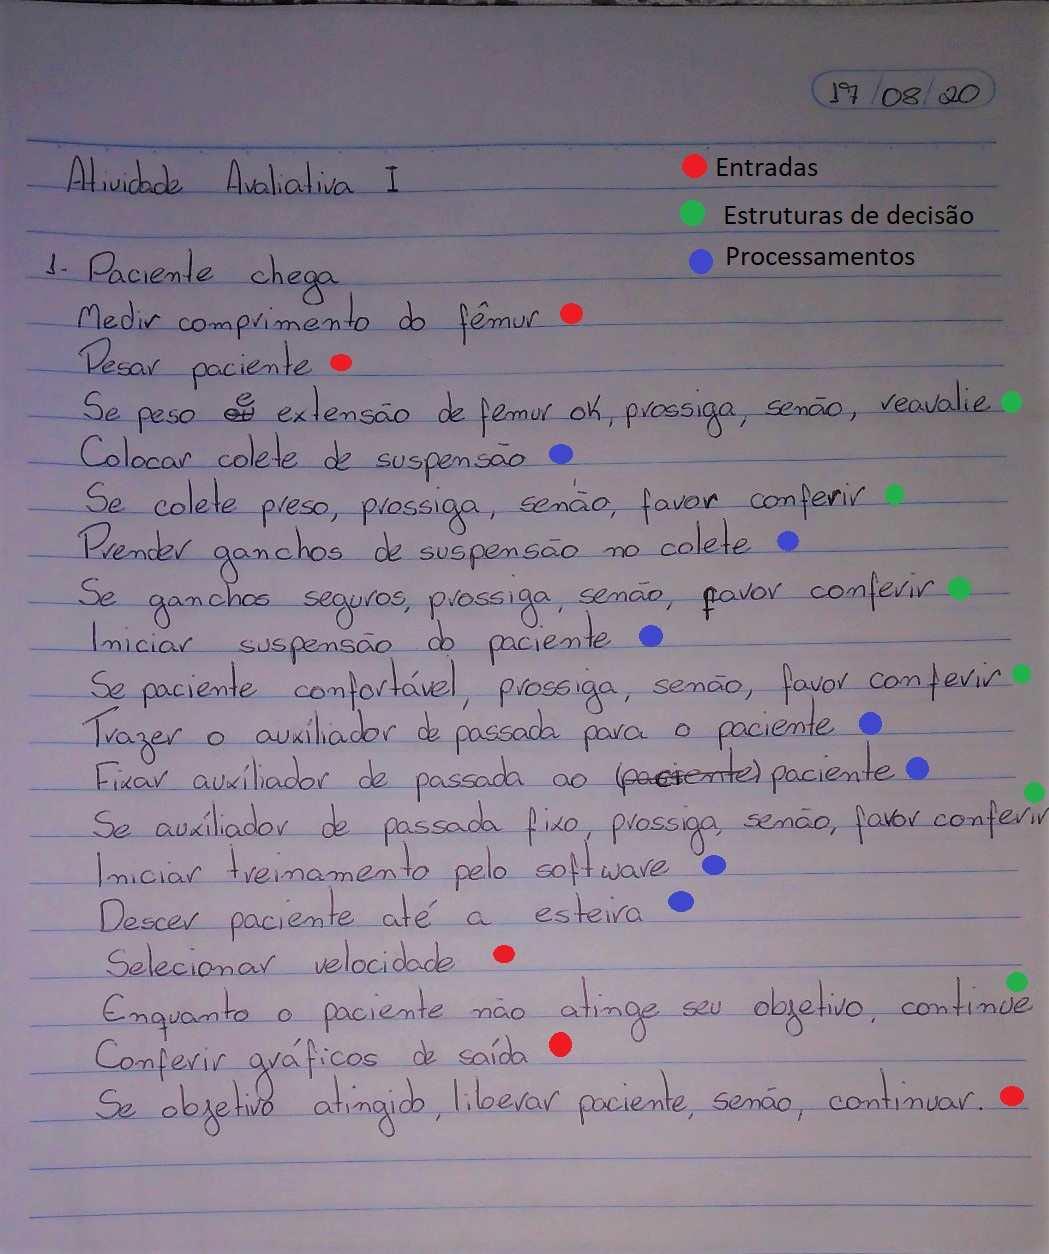 17/08/20
Atividade Avaliativa I
Entradas
Estruturas de decisão
Processamentos
1- Paciente chega
Medir comprimento do fêmur
Pesar paciente
Se peso e extensão de fêmur ok, prossiga, senão, reavalie
Colocar colete de suspensão
Se colete preso, prossiga, senão, favor conferir
Prender ganchos de suspensão no colete
Se ganchos seguros, prossiga, senão, favor conferir
Iniciar suspensão do paciente
Se paciente confortável, prossiga, senão, favor conferir
Trazer o auxiliador de passada para o paciente
Fixar auxiliador de passada ao (paciente) paciente
Se auxiliador de passada fixo, prossiga, senão, favor conferir
Iniciar treinamento pelo software
Descer paciente até a esteira
Selecionar velocidade
Enquanto o paciente não atinge seu objetivo, continue
Conferir gráficos de saída
Se objetivo atingido, liberar paciente, senão, continuar.